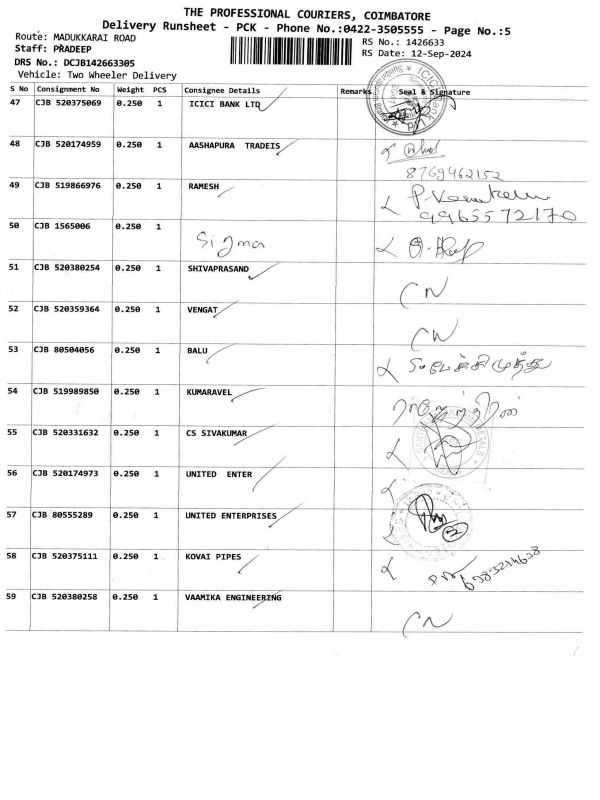 THE PROFESSIONAL COURIERS, COIMBATORE
Delivery Runsheet - PCK - Phone No.:0422-3505555 - Page No.:5
Route: MADUKKARAI ROAD
RS No.: 1426633
Staff: PRADEEP
RS Date: 12-Sep-2024
DRS No.: DCJB142663305
Vehicle: Two Wheeler Delivery
S No Consignment No Weight PCS Consignee Details Remarks Seal & Signature
47 CJB 520375069 0.250 1 ICICI BANK LTD
48 CJB 520174959 0.250 1 AASHAPURA TRADEIS
8769462152
49 CJB 519866976 0.250 1 RAMESH
9965572170
50 CJB 1565006 0.250 1 Sigma
51 CJB 520380254 0.250 1 SHIVAPRASAND CN
52 CJB 520359364 0.250 1 VENGAT CN
53 CJB 80504056 0.250 1 BALU
54 CJB 519989850 0.250 1 KUMARAVEL
55 CJB 520331632 0.250 1 CS SIVAKUMAR
56 CJB 520174973 0.250 1 UNITED ENTER
57 CJB 80555289 0.250 1 UNITED ENTERPRISES
58 CJB 520375111 0.250 1 KOVAI PIPES
59 CJB 520380258 0.250 1 VAAMIKA ENGINEERING CN